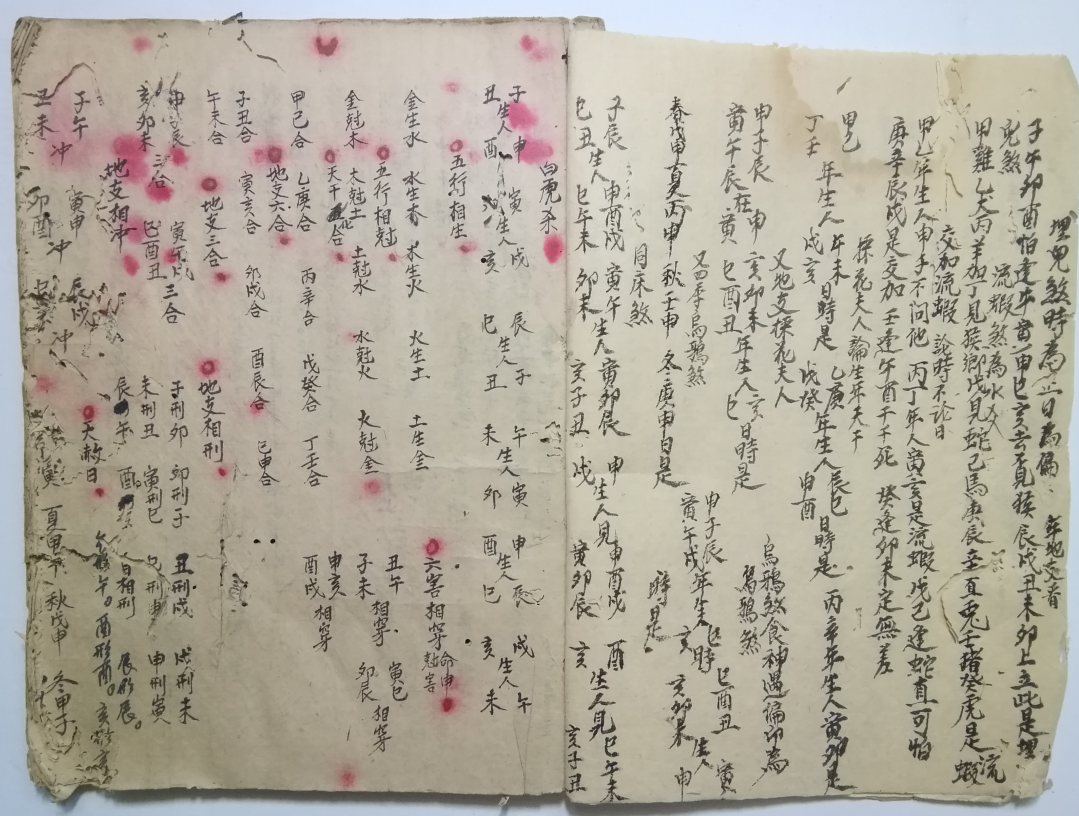 埋兒煞時為正日為偏 年地支看
子午卯酉怕逢牛寅申巳亥去見猴辰戌丑未卯上立此是埋
兒煞
流蝦煞為水火
甲雞乙犬丙羊加丁見猴鄉戊見蛇己馬庚辰辛直兎壬猪癸虎是流
蝦
交加流蝦 論時不论日
甲乙年生人申子不问他 丙丁年人寅亥是流蝦戊己逢蛇直可怕
庚辛辰戌是交加 壬逢午酉千千死 癸逢卯未定無差
探花夫人論生年天干
甲己 年生人 午未日時是 乙庚 年生人辰巳日時是 丙辛年生人寅卯是
丁壬 戌亥 戊癸 申酉
又地支探花夫人
申子辰 申 亥卯未 年生人亥日時是
寅午辰在寅 巳酉丑 巳
烏鴉煞食神遇偏印為
烏鴉煞
又四季烏鴉煞
春戊申夏丙申秋壬申冬庚申日是
申子辰 年生人 巳時 巳酉丑 生人 寅
寅午戌 亥 亥卯未 申
時是
同床煞
子辰 申酉戌 寅午 生人 寅卯辰 申 生人見申酉戌 酉 生人見巳午未
巳丑生人 巳午未 卯未 亥子丑 戌 寅卯辰 亥 亥子丑
白虎杀
子 生人 申 寅 生人 戌 辰 生人 子 午 生人 寅 申 生人 辰 戌 生人 午
丑 酉 亥 巳 丑 未 卯 酉 巳 亥 未
五行相生
金生水 水生木 木生火 火生土 土生金
五行相尅
金尅木 木尅土 土尅水 水尅火 火尅金
天干五合
甲己合 乙庚合 丙辛合 戊癸合 丁壬合
地支六合
子丑合 寅亥合 卯戌合 酉辰合 巳申合
午未合
六害相穿
丑午 相穿 寅巳
子未 卯辰 相穿
申亥 相穿
酉戌
地支三合
申子辰 三合 寅午戌 三合
亥卯未 巳酉丑
地支相刑
子刑卯 卯刑子 丑刑戌 戌刑未
未刑丑 寅刑巳 巳刑申 申刑寅
自相刑 辰形辰。
酉形酉。
地支相冲
子午 冲 寅申 冲 辰戌 冲
丑未 卯酉
天赦日
夏甲午 秋戊申 冬甲子